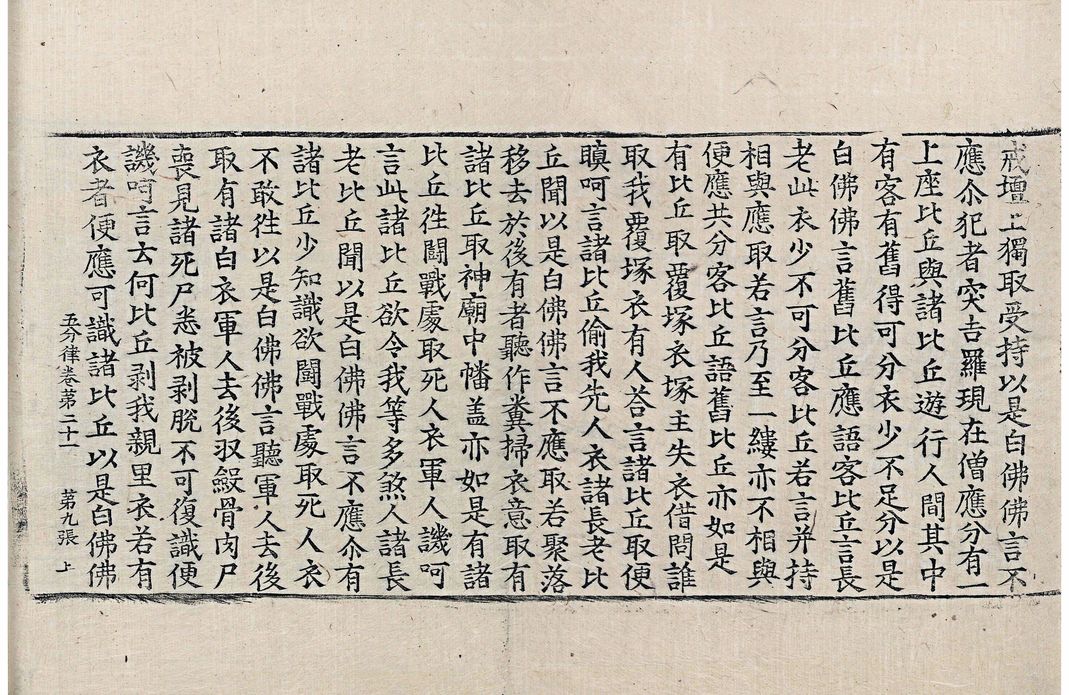 戒壇上獨取受持以是白佛佛言不
應尒犯者突吉羅現在僧應分有一
上座比丘與諸比丘遊行人間其中
有客有舊得可分衣少不足分以是
白佛佛言舊比丘應語客比丘言長
老此衣少不可分客比丘若言并持
相與應取若言乃至一縷亦不相與
便應共分客比丘語舊比丘亦如是
有比丘取覆塚衣塚主失衣借問誰
取我覆塚衣有人荅言諸比丘取便
瞋呵言諸比丘偷我先人衣諸長老比
丘聞以是白佛佛言不應取若聚落
移去於後有者聽作糞掃衣意取有
諸比丘取神廟中幡盖亦如是有諸
比丘徃鬪戰處取死人衣軍人譏呵
言此諸比丘欲令我等多煞人諸長
老比丘聞以是白佛佛言不應尒有
諸比丘少知識欲鬪戰處取死人衣
不敢徃以是白佛佛言聽軍人去後
取有諸白衣軍人去後収斂骨肉尸
喪見諸死尸悉被剥脫不可復識便
譏呵言云何比丘剥我親里衣若有
衣者便應可識諸比丘以是白佛佛
五分律卷第二十一 第九張 上